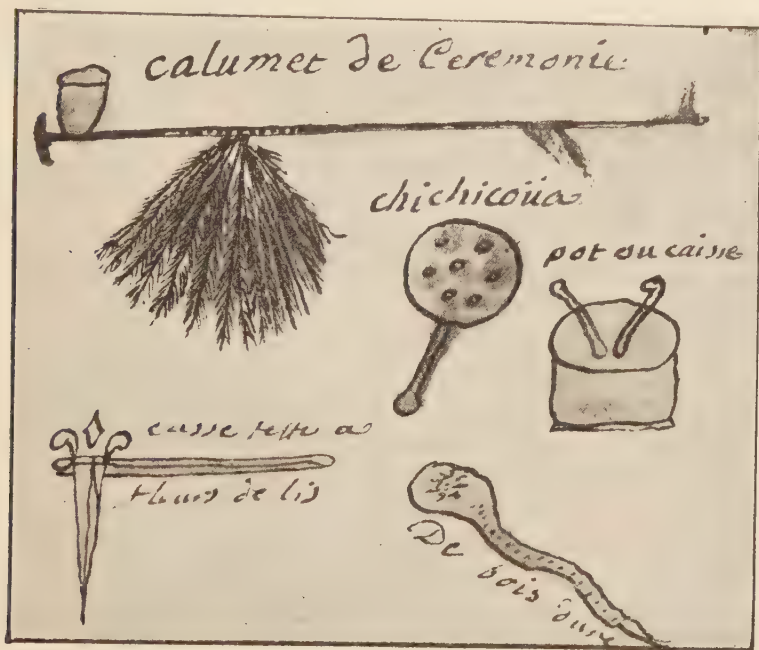 calumet de Ceremonie
chichicoüa
pot ou caisse
casse teste a
fleurs de lis
De bois dure